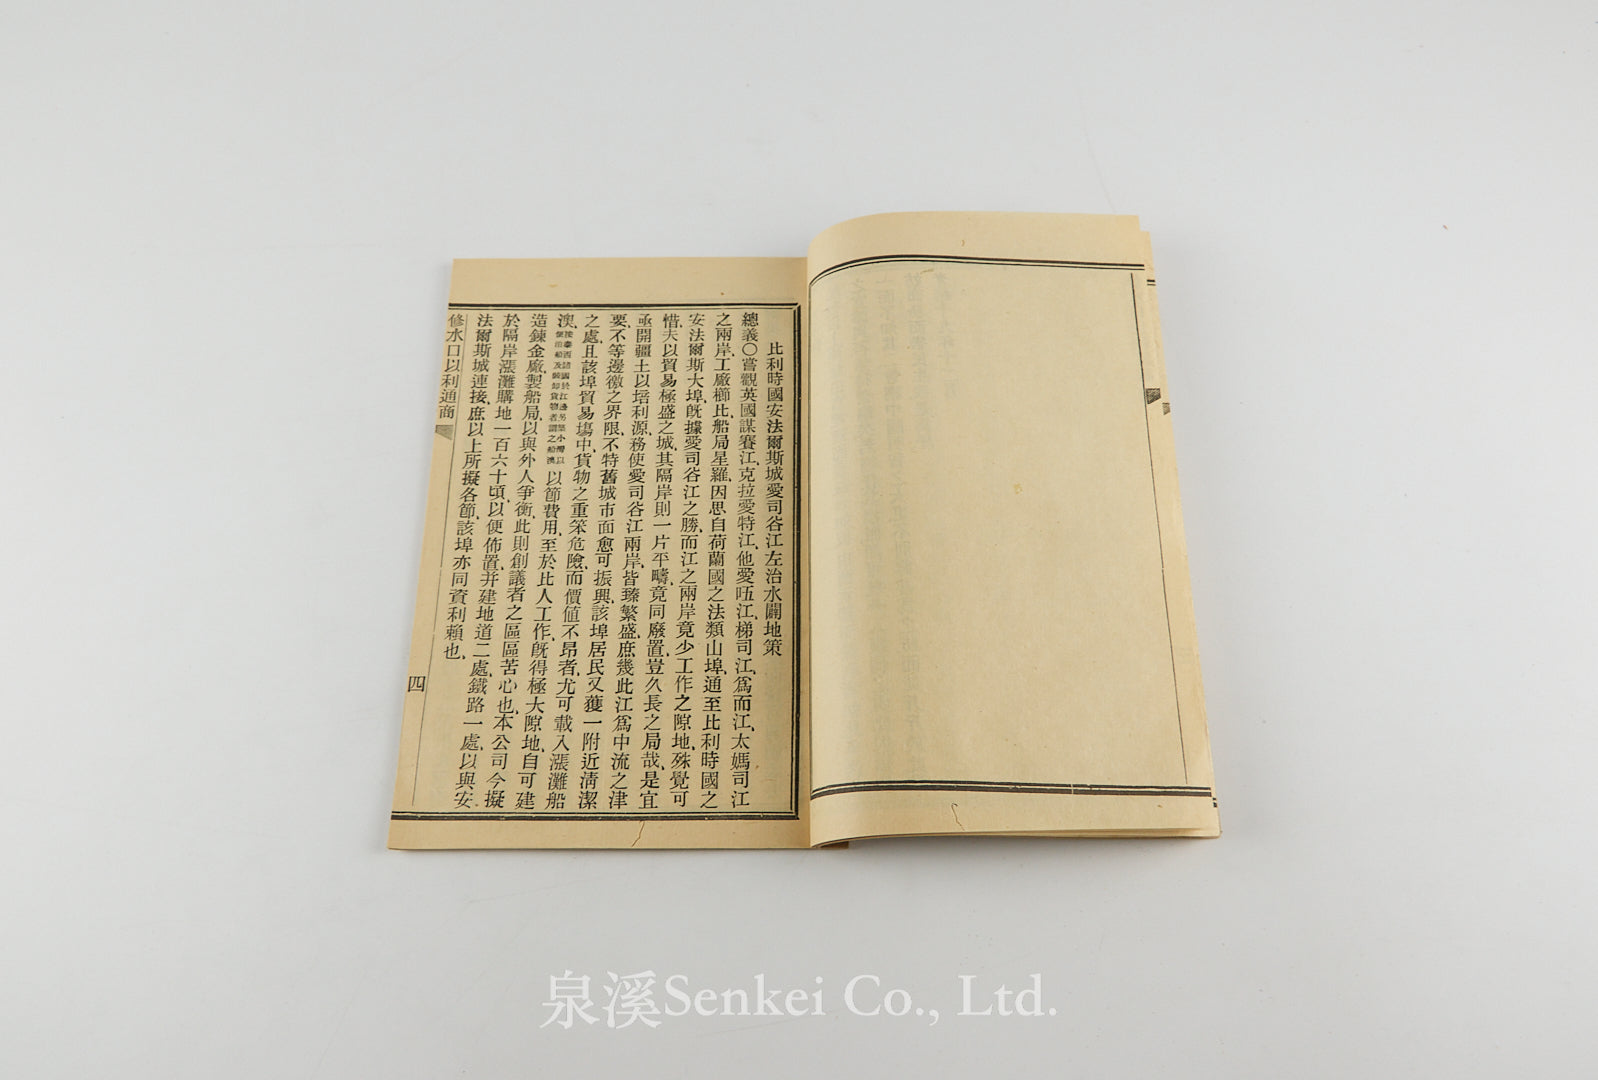 比利時國安法爾斯城愛司谷江左治水闢地策
總義○嘗觀英國謀賽江克拉愛特江他愛㕶江梯司江為而江太媽司江
之兩岸工廠櫛比船局星羅因思自荷蘭國之法類山埠通至比利時國之
安法爾斯大埠既據愛司谷江之勝而江之兩岸竟少工作之隙地殊覺可
惜夫以貿易極盛之城其隔岸則一片平疇竟同廢置豈久長之局哉是宜
亟開疆土以培利源務使愛司谷江兩岸皆臻繁盛庶幾此江為中流之津
要不等邊徼之界限不特舊城市面愈可振興該埠居民又獲一附近清潔
之處且該埠貿易塲中貨物之重笨危險而價值不昂者尤可載入漲灘船
澳按泰西諸國於江邊另築小灣以便泊船及裝卸貨物者謂之船澳以節費用至於比人工作既得極大隙地自可建
造鍊金廠製船局以與外人爭衡此則創議者之區區苦心也本公司今擬
於隔岸漲灘購地一百六十頃以便佈置并建地道二處鐵路一處以與安
法爾斯城連接庶以上所擬各節該埠亦同資利賴也
修水口以利通商
四
泉溪Senkei Co., Ltd.